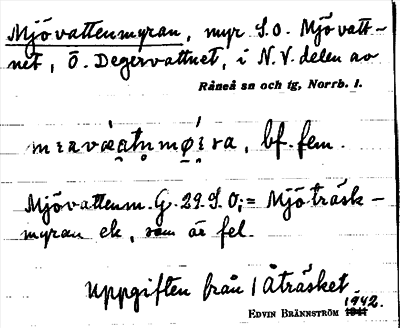 Mjövattenmyran, myr S.O. Mjövatt-
net, Ö. Degervattnet, i N.V. delen av
Råneå sn och tg, Norrb. l.
bf. fem.
Mjövattenm. G. 29. S.O; = Mjöträsk-
myran ek, som är fel.
Uppgiften från Åträsket.
1942.
EDVIN BRÄNNSTRÖM 1941